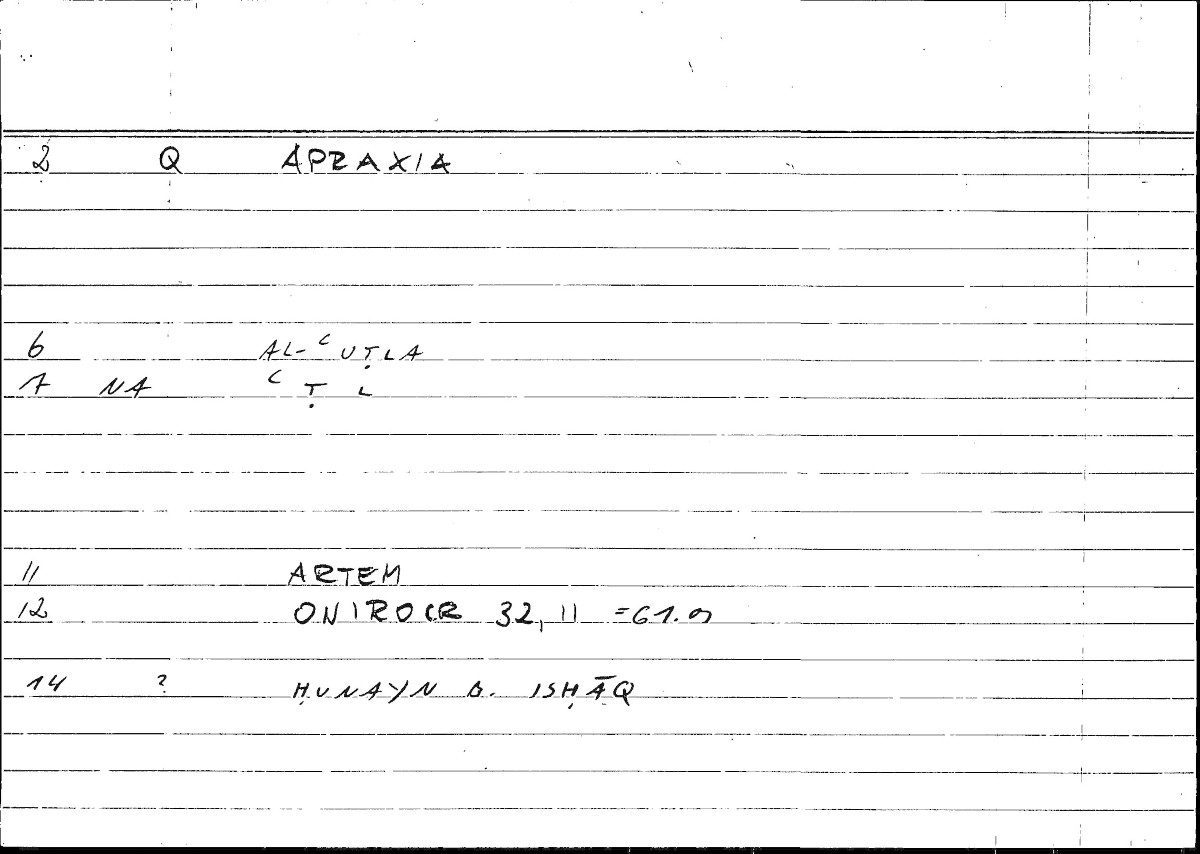 2 Q APRAXIA
6 AL-ʿUṬLA
7 NA ʿ Ṭ L
11 ARTEM
12 ONIROCR 32, 11 =61.9
14 ? ḤUNAYN B. ISḤĀQ